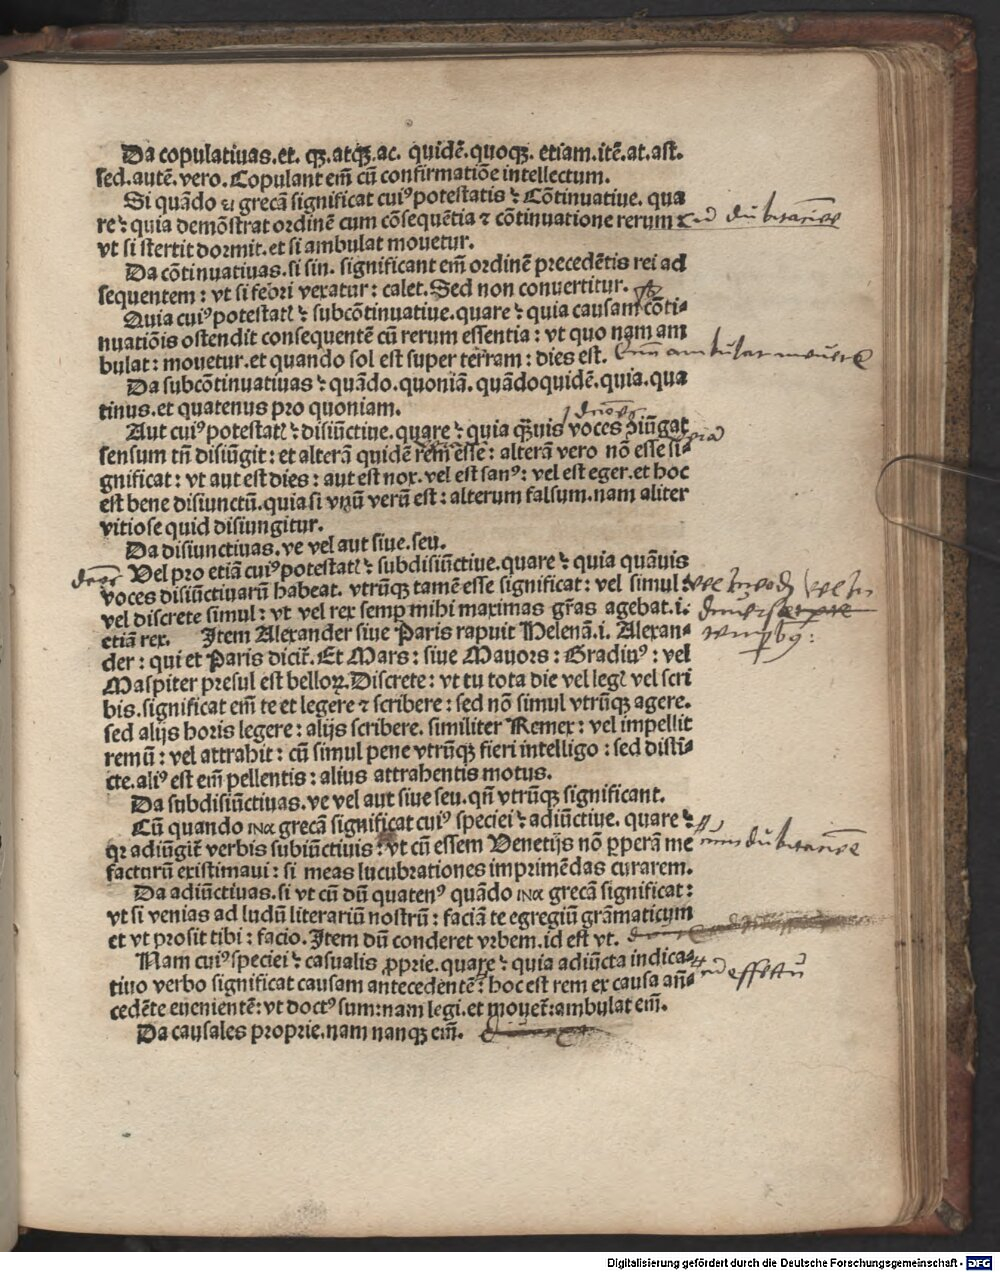 Da copulatiuas.et. qꝫ.atqꝫ.ac. quidē.quoqꝫ. etiam.itē.at.ast.
sed.autē.vero.Copulant em̄ cū confirmatiōe intellectum.
Si quādo ει grecā significat cuiꝰ potestatis ē: Cōtinuatiue. qua
re ē: quia demōstrat ordinē cum cōsequētia ⁊ cōtinuatione rerum
vt si stertit dormit.et si ambulat mouetur.
Da cōtinuatiuas.si sin. significant em̄ ordinē precedētis rei ad
sequentem: vt si febri vexatur: calet. Sed non conuertitur.
Quia cuiꝰ potestatꝭ ē: subcōtinuatiue.quare ē: quia causam cōti⸗
nuatiōis ostendit consequentē cū rerum essentia: vt quo nam am
bulat: mouetur.et quando sol est super terram: dies est.
ambulat
Da subcōtinuatiuas ē: quādo. quoniā. quādoquidē.quia.qua
tinus.et quatenus pro quoniam.
Aut cuiꝰ potestatꝭ ē: disiūctiue. quare ē: quia q̄uis voces ꝯiūgat
sensum tn̄ disiūgit: et alterā quidē rem esse: alterā vero nō esse si⸗
gnificat: vt aut est dies: aut est nox. vel est sanꝰ: vel est eger.et hoc
est bene disiunctū.quia si vnū verū est: alterum falsum.nam aliter
vitiose quid disiungitur.
Da disiunctiuas.ve vel aut siue.seu.
Vel pro etiā cuiꝰ potestatꝭ ē: subdisiūctiue.quare ē: quia quāuis
voces disiūctiuarū habeat. vtrūqꝫ tamē esse significat: vel simul:
vel discrete simul: vt vel rex semꝑ mihi maximas gr̄as agebat.i.
etiā rex. Item Alexander siue Paris rapuit Helenā.i. Alexan⸗
der: qui et Paris dicit̄. Et Mars: siue Mauors: Gradiuꝰ: vel
Maspiter presul est belloꝝ. Discrete: vt tu tota die vel legꝭ vel scri
bis.significat em̄ te et legere ⁊ scribere: sed nō simul vtrūqꝫ agere.
sed alijs horis legere: alijs scribere. similiter Remex: vel impellit
remū: vel attrahit: cū simul pene vtrūqꝫ fieri intelligo: sed disti⸗
cte.aliꝰ est em̄ pellentis: alius attrahentis motus.
Da subdisiūctiuas.ve vel aut siue seu.qn̄ vtrūqꝫ significant.
Cū quando ινα grecā significat cuiꝰ speciei ē: adiūctiue. quare ē:
qꝛ adiūgit̄ verbis subiūctiuis: vt cū essem Venetijs nō ꝑperā me
facturū existimaui: si meas lucubrationes imprimēdas curarem.
Da adiūctiuas.si vt cū dū quatenꝰ quādo ινα grecā significat:
vt si venias ad ludū literariū nostrū: faciā te egregiū grāmaticum
et vt prosit tibi: facio. Item dū conderet vrbem.id est vt.
Nam cuiꝰ speciei ē: casualis ꝓprie.quare ē: quia adiūcta indica⸗
tiuo verbo significat causam antecedentē: hoc est rem ex causa an̄⸗
effectū
cedēte euenientē: vt doctꝰ sum: nam legi.et mouet̄: ambulat em̄.
Da causales proprie.nam nanqꝫ em̄.
Digitalisierung gefördert durch die Deutsche Forschungsgemeinschaft - DFG